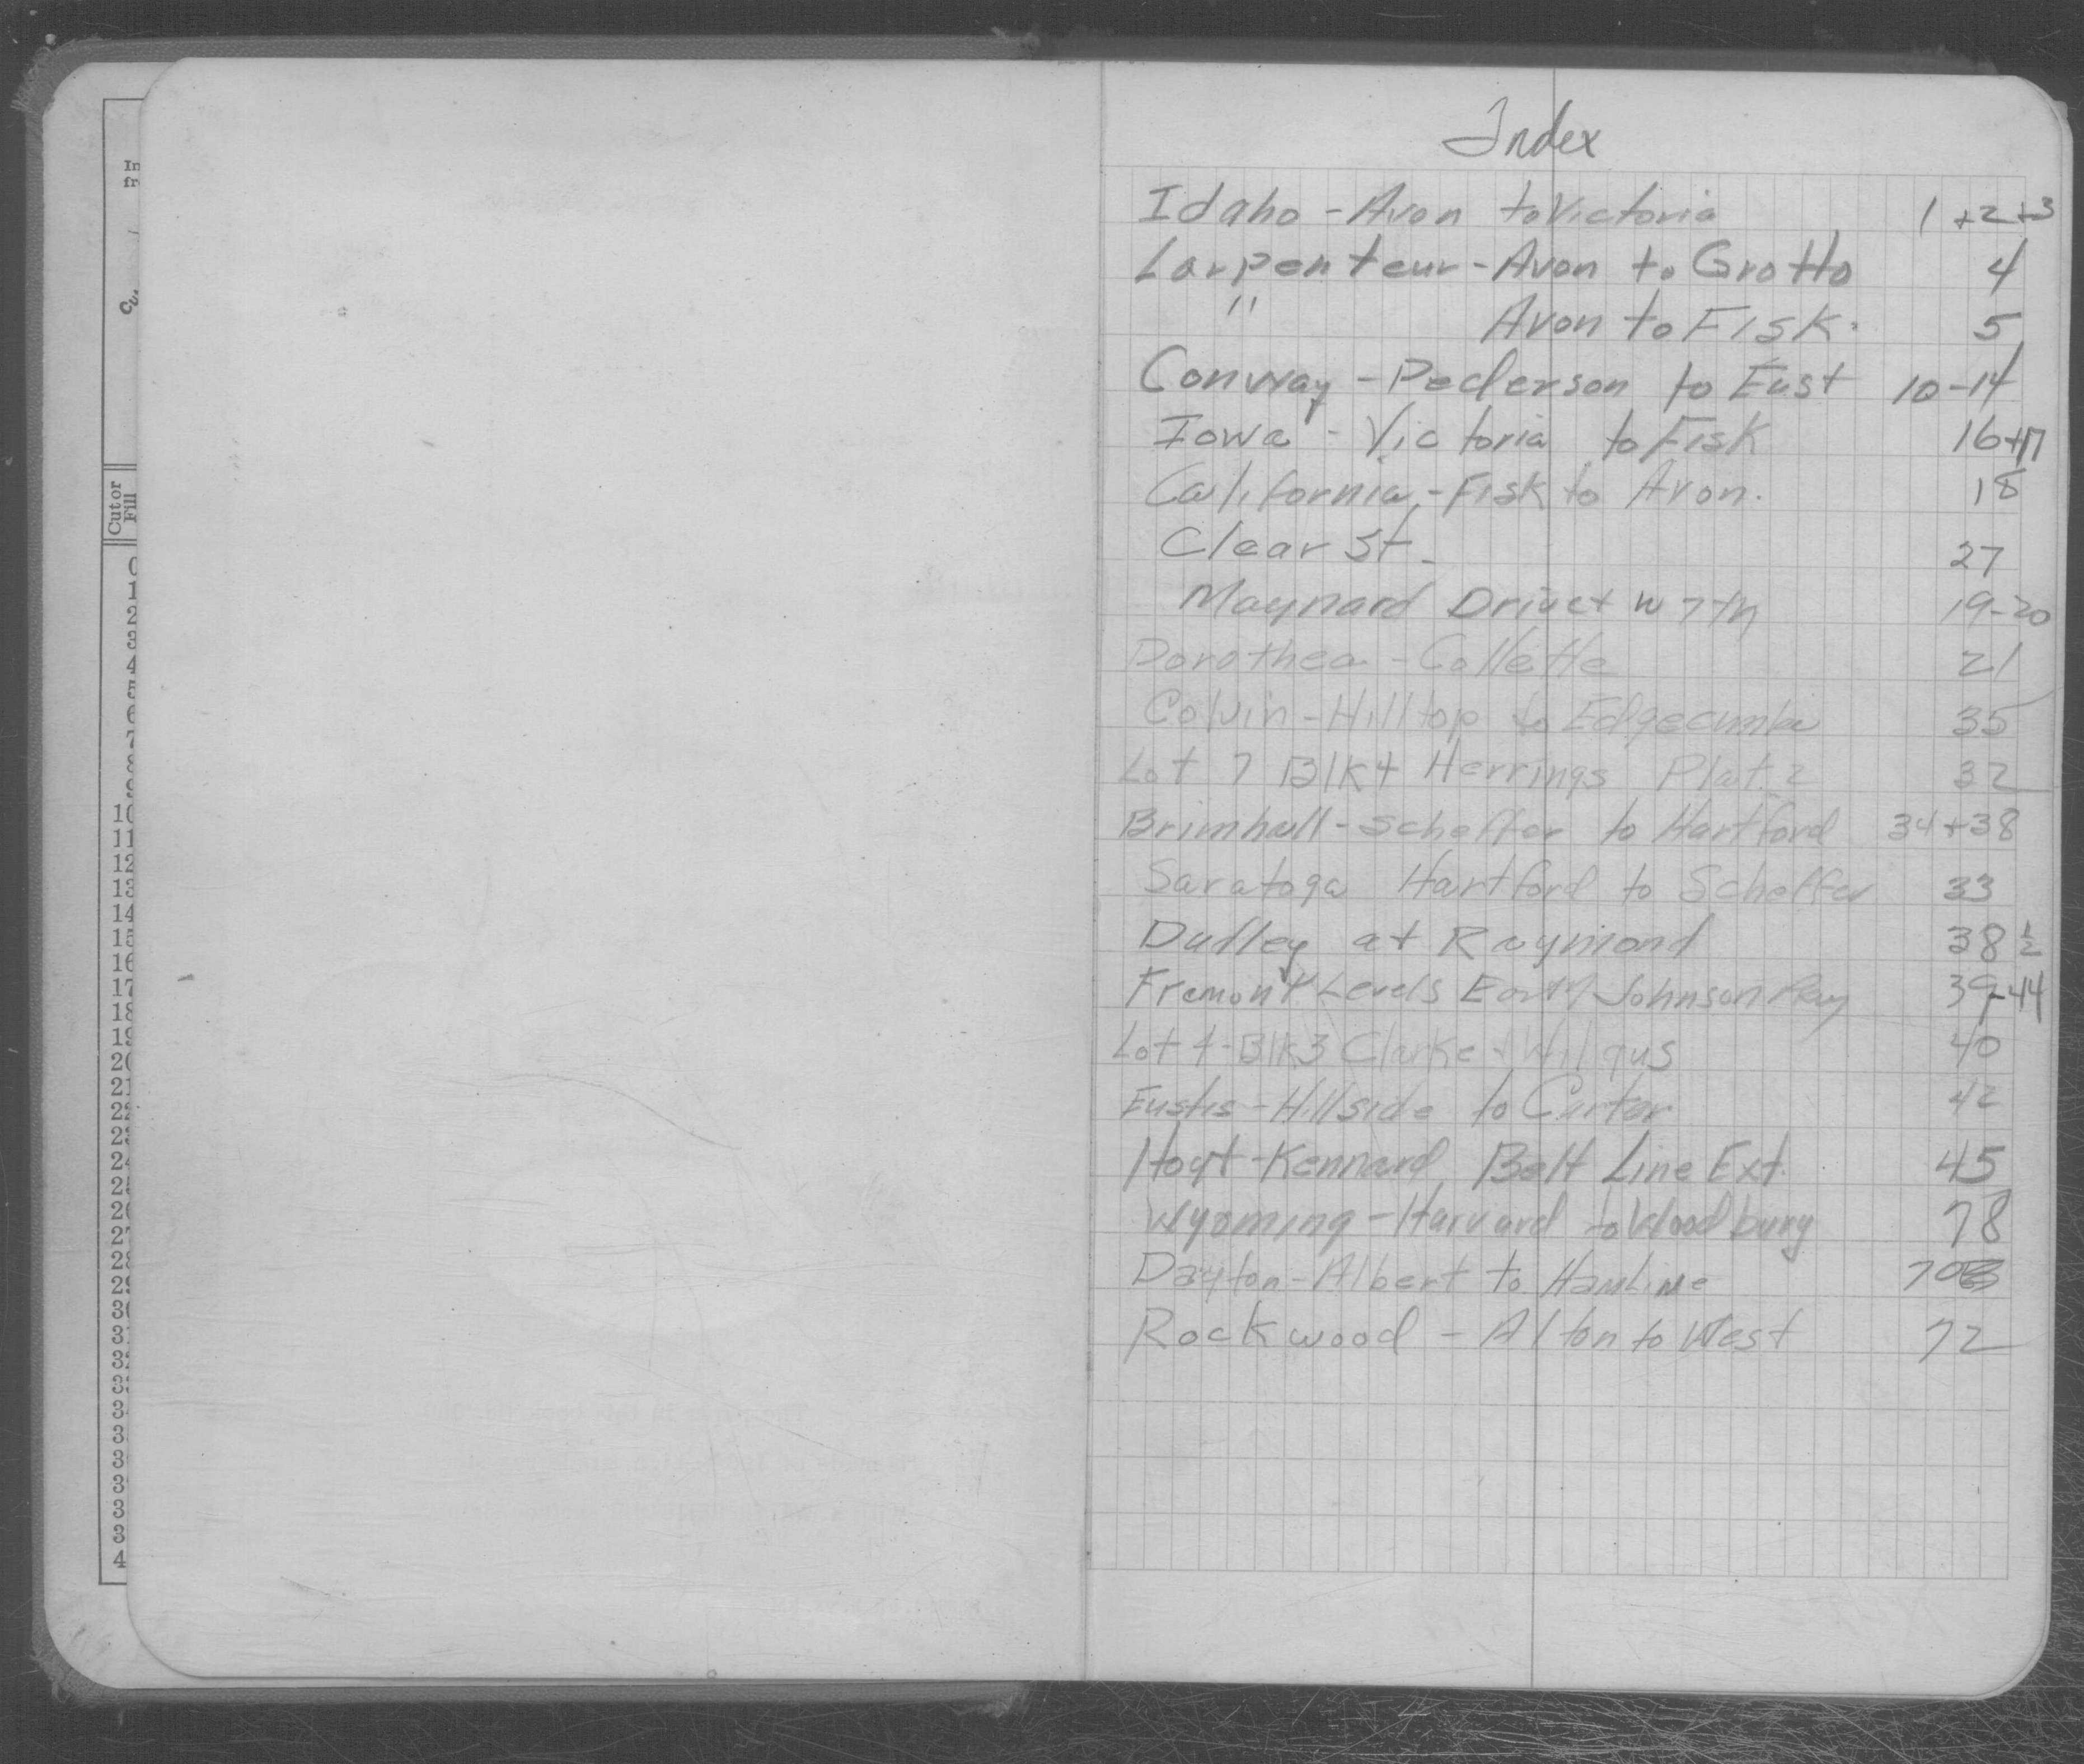 Index
Idaho - Avon to Victoria 1+2+3
Larpenteur - Avon to Grotto 4
" Avon to Fisk. 5
Conway - Pederson to East 10-14
Iowa - Victoria to Fisk 16+17
California - Fisk to Avon. 18
Clear St. 27
Maynard Drive + W 7th 19-20
Dorothea - Collette 21
Colvin - Hilltop to Edgecumbe 35
Lot 7 Blk 4 Herrings Plat. 2 32
Brimhall - Scheffer to Hartford 34+38
Saratoga Hartford to Scheffer 33
Dudley at Raymond 38 ½
Fremont Levels E of Johnson Pkwy 39-44
Lot 4 - Blk 3 Clarke + Wilgus 40
Eustis - Hillside to Carter 42
Hoyt - Kennard Belt Line Ext. 45
Wyoming - Harvard to Woodbury 78
Dayton - Albert to Hamline 70
Rockwood - Alton to West 72
In
fr
Cut or
Fill
0
1
2
3
4
5
6
7
8
9
10
11
12
13
14
15
16
17
18
19
20
21
22
23
24
25
26
27
28
29